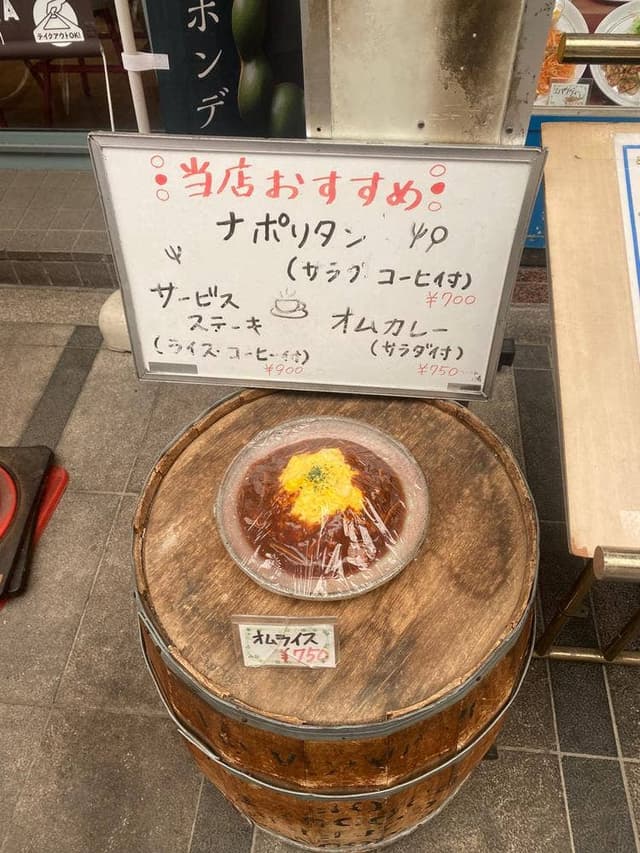 テイクアウトOK!
ポンデ
当店おすすめ
ナポリタン
(サラダ コーヒー付)
¥700
サービス
ステーキ
(ライス・コーヒー付)
¥900
オムカレー
(サラダ付)
¥750
オムライス
¥750